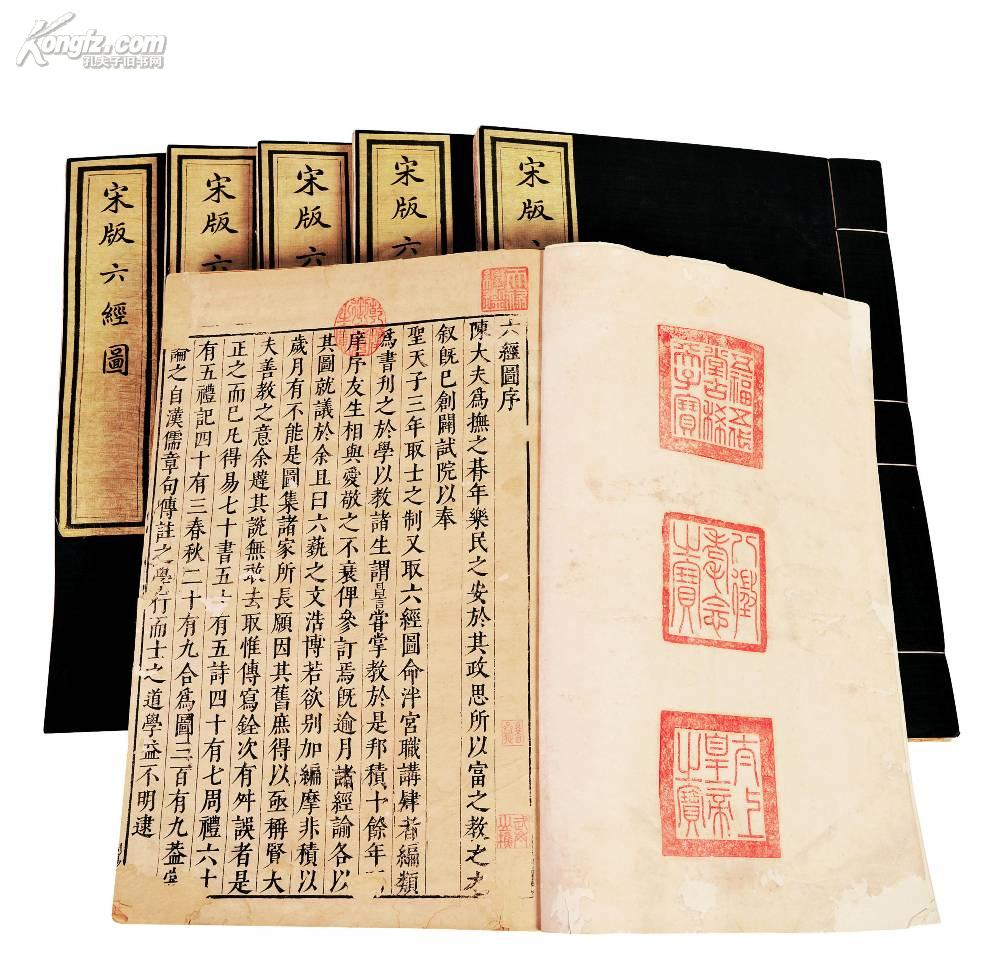 Kongfz.com
孔夫子旧书网
宋版六經圖
宋版六
宋版六
宋版六
宋版
六經圖序
陳大夫爲撫之朞年樂民之安於其政思所以富之教之
敘旣已創闢試院以奉
聖天子三年取士之制又取六經圖命泮宮職講肄者編類
爲書刋之於學以教諸生謂昌言嘗掌教於是邦積十餘年
庠序友生相與愛敬之不衰俾參訂焉旣逾月諸經論各以
其圖就議於余且曰六蓺之文浩博若欲別加編摩非積以
歲月有不能是圖集諸家所長願因其舊庶得以亟稱賢大
夫善教之意余韙其說無敢去取惟傳寫銓次有舛誤者是
正之而已凡得易七十書五十有五詩四十有七周禮六十
有五禮記四十有三春秋二十有九合爲圖三百有九蓋嘗
論之自漢儒章句傳註之學行而士之道學益不明逮
天祿繼鑑
乾隆御覽之寶
五福五代堂古稀天子寶
八徵耄念之寶
太上皇帝之寶